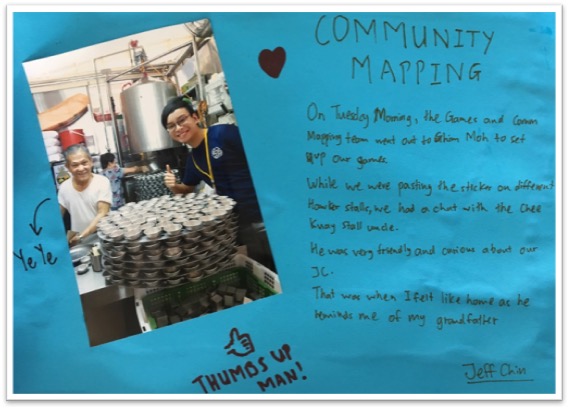 COMMUNITY
MAPPING
On Tuesday Morning, the Games and Comm
Mapping team went out to Ghim Moh to set
up our games.
While we were pasting the sticker on different
Hawker stalls, we had a chat with the Chee
Kuay Stall uncle.
He was very friendly and curious about our
JC.
That was when I felt like home as he
reminds me of my grandfather
Jeff Chin
Ye Ye
THUMBS UP
MAN!